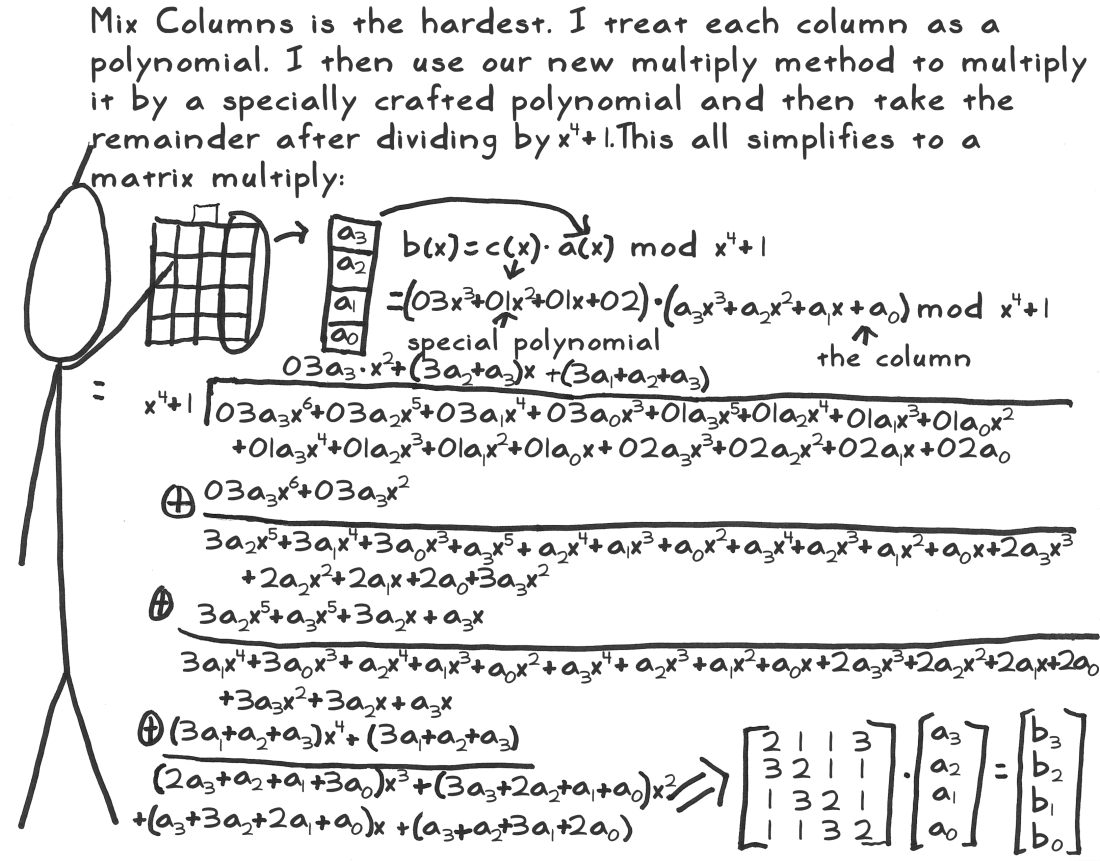 Mix Columns is the hardest. I treat each column as a
polynomial. I then use our new multiply method to multiply
it by a specially crafted polynomial and then take the
remainder after dividing by x⁴+1.This all simplifies to a
matrix multiply:
a₃
a₂
a₁
a₀
b(x)=c(x)·a(x) mod x⁴+1
=(03x³+01x²+01x+02)·(a₃x³+a₂x²+a₁x+a₀) mod x⁴+1
special polynomial
the column
03a₃·x²+(3a₂+a₃)x+(3a₁+a₂+a₃)
=
x⁴+1
03a₃x⁶+03a₂x⁵+03a₁x⁴+03a₀x³+01a₃x⁵+01a₂x⁴+01a₁x³+01a₀x²
+01a₃x⁴+01a₂x³+01a₁x²+01a₀x+02a₃x³+02a₂x²+02a₁x+02a₀
⊕ 03a₃x⁶+03a₃x²
3a₂x⁵+3a₁x⁴+3a₀x³+a₃x⁵+a₂x⁴+a₁x³+a₀x²+a₃x⁴+a₂x³+a₁x²+a₀x+2a₃x³
+2a₂x²+2a₁x+2a₀+3a₃x²
⊕ 3a₂x⁵+a₃x⁵+3a₂x+a₃x
3a₁x⁴+3a₀x³+a₂x⁴+a₁x³+a₀x²+a₃x⁴+a₂x³+a₁x²+a₀x+2a₃x³+2a₂x²+2a₁x+2a₀
+3a₃x²+3a₂x+a₃x
⊕ (3a₁+a₂+a₃)x⁴+(3a₁+a₂+a₃)
(2a₃+a₂+a₁+3a₀)x³+(3a₃+2a₂+a₁+a₀)x²
+(a₃+3a₂+2a₁+a₀)x+(a₃+a₂+3a₁+2a₀)
2 1 1 3   a₃   b₃
3 2 1 1 · a₂ = b₂
1 3 2 1   a₁   b₁
1 1 3 2   a₀   b₀